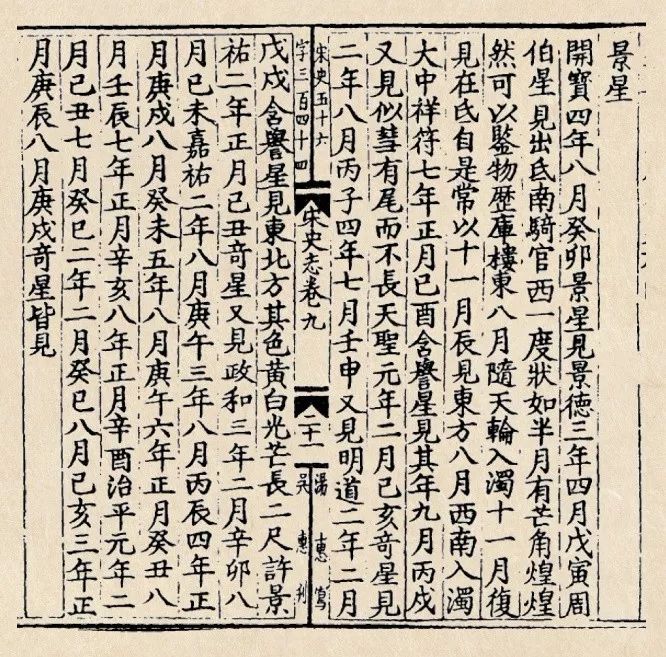 景星
開寶四年八月癸卯景星見景德三年四月戊寅周
伯星見出氐南騎官西一度狀如半月有芒角煌煌
然可以鑒物歷庫樓東八月隨天輪入濁十一月復
見在氐自是常以十一月辰見東方八月西南入濁
大中祥符七年正月己酉含譽星見其年九月丙戌
又見似彗有尾而不長天聖元年二月己亥奇星見
二年八月丙子四年七月壬申又見明道二年二月
宋史五十六
字三百四十四
宋史志卷九
二十一
湯惠寫
吳惠刊
戊戌含譽星見東北方其色黃白光芒長二尺許景
祐二年正月己丑奇星又見政和三年二月辛卯八
月己未嘉祐二年八月庚午三年八月丙辰四年正
月庚戌八月癸未五年八月庚午六年正月癸丑八
月壬辰七年正月辛亥八年正月辛酉治平元年二
月己丑七月癸巳二年二月癸巳八月己亥三年正
月庚辰八月庚戌奇星皆見